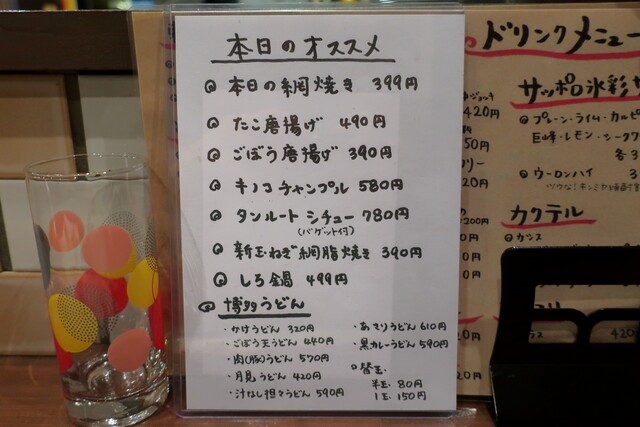 本日のオススメ
本日の網焼き 399円
たこ唐揚げ 490円
ごぼう唐揚げ 390円
キノコチャンプル 580円
タンルートシチュー 780円
(バゲット付)
新玉ねぎ網脂焼き 390円
しろ鍋 499円
博多うどん
・かけうどん 320円
・ごぼう天うどん 440円
・肉(豚)うどん 570円
・月見うどん 420円
・汁なし担々うどん 590円
・あさりうどん 610円
・黒カレーうどん 590円
替玉・
半玉 80円
1玉 150円
ドリンクメニュー
サッポロ氷彩サ
プレーン・ライム・カルピ
巨峰・レモン・シークワ
各3
ウーロンハイ 3
カクテル
カシス
420円
50円
20円
200円
20円
420